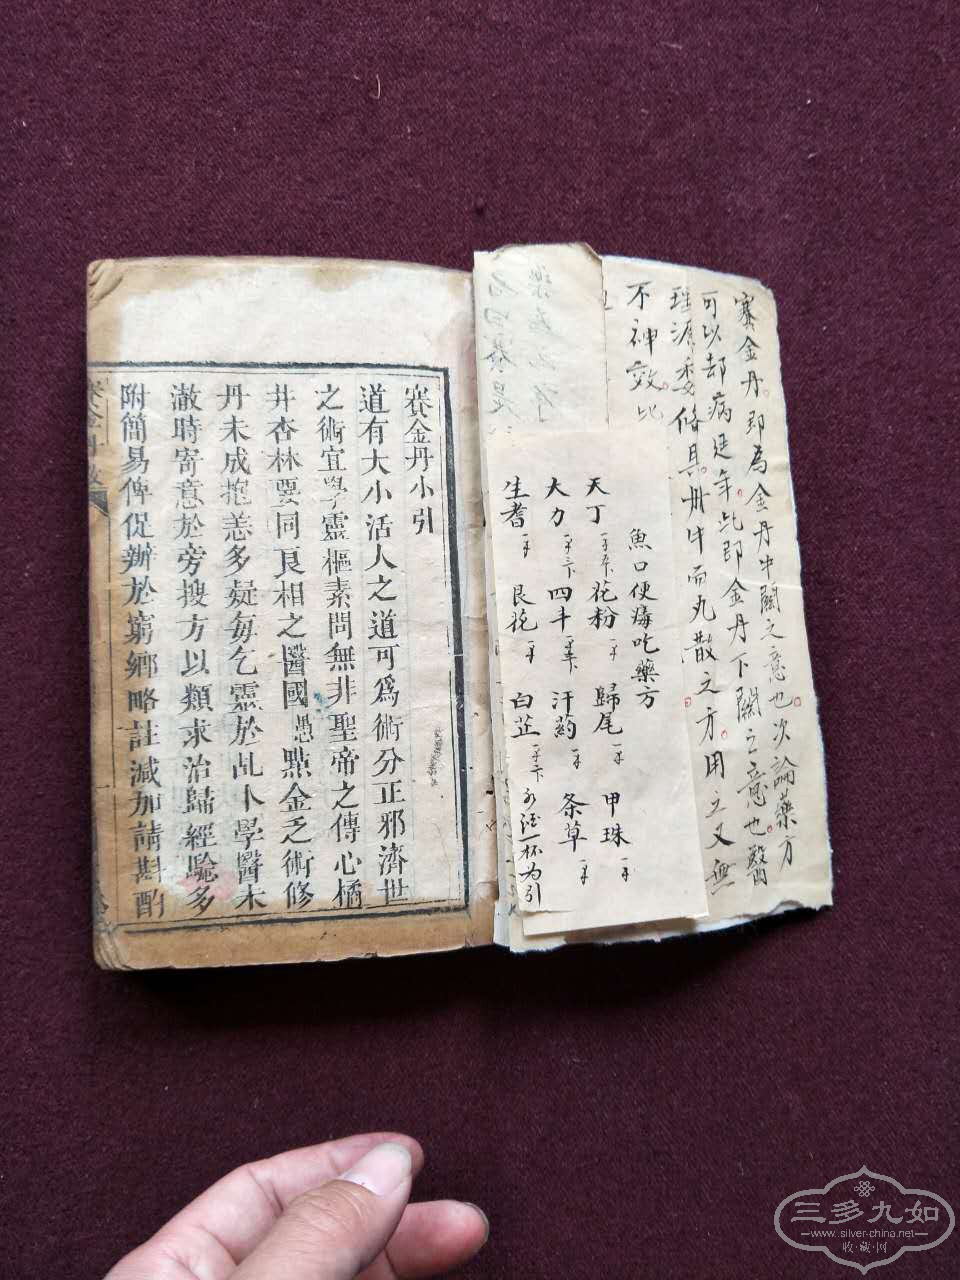 賽金丹即為金丹中關之意也次論藥方
可以却病延年此即金丹下關之意也醫
理源委條具卅牛而丸散之方用之又無
不神效比
魚口便毒吃藥方
天丁 花粉 歸尾 甲珠
大力 四丰 汗葯 条草
生耆 艮花 白芷 水酒一杯为引
賽金丹小引
道有大小活人之道可為術分正邪濟世
之術宜學靈樞素問無非聖帝之傳心橘
井杏林要同良相之醫國愚點金乏術修
丹未成抱恙多疑每乞靈於乩卜學醫未
澈時寄意於旁搜方以類求治歸經驗多
附簡易俾促辦於窮鄉略註減加請斟酌
三多九如
www.silver-china.net
收·藏·网